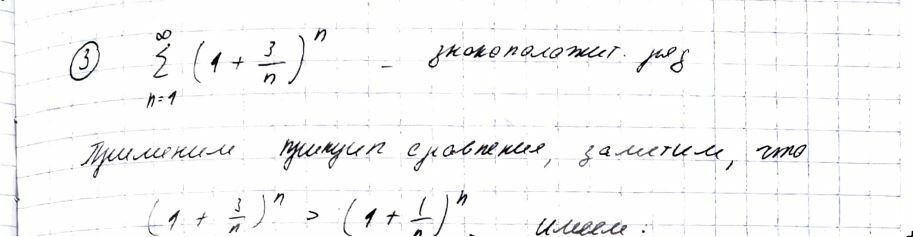 ③ ∞∑n=1 (1 + 3/n)^n - знакоположит. ряд
Применим принцип сравнения, заметим, что
(1 + 3/n)^n > (1 + 1/n)^n, имеем: